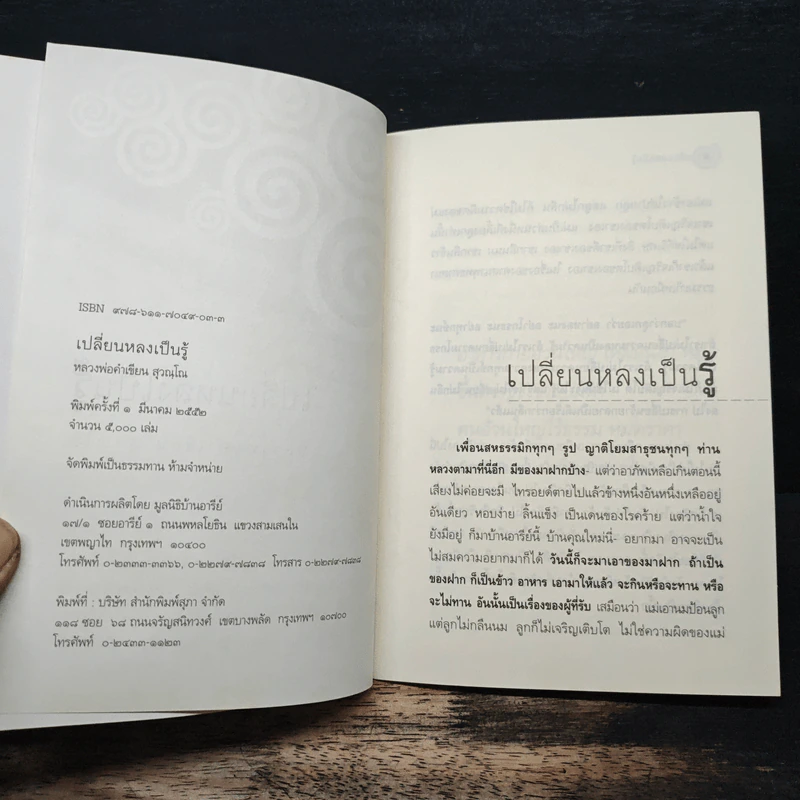 ISBN ๙๗๘-๖๑๑-๗๐๔๙-๐๓-๓
เปลี่ยนหลงเป็นรู้
หลวงพ่อคำเขียน สุวณฺโณ
พิมพ์ครั้งที่ ๑ มีนาคม ๒๕๕๒
จำนวน ๕,๐๐๐ เล่ม
จัดพิมพ์เป็นธรรมทาน ห้ามจำหน่าย
ดำเนินการผลิตโดย มูลนิธิบ้านอารีย์
๑๗/๑ ซอยอารีย์ ๑ ถนนพหลโยธิน แขวงสามเสนใน
เขตพญาไท กรุงเทพฯ ๑๐๔๐๐
โทรศัพท์ ๐-๒๓๓๓-๓๓๖๖, ๐-๒๒๗๙-๗๘๓๘ โทรสาร ๐-๒๒๗๙-๗๘๓๘
พิมพ์ที่ : บริษัท สำนักพิมพ์สุภา จำกัด
๑๑๘ ซอย ๖๘ ถนนจรัญสนิทวงศ์ เขตบางพลัด กรุงเทพฯ ๑๐๗๐๐
โทรศัพท์ ๐-๒๔๓๓-๑๑๒๓
เปลี่ยนหลงเป็นรู้
เพื่อนสหธรรมิกทุกๆ รูป ญาติโยมสาธุชนทุกๆ ท่าน
หลวงตามาที่นี่อีก มีของมาฝากบ้าง- แต่ว่าอาภัพเหลือเกินตอนนี้
เสียงไม่ค่อยจะมี ไทรอยด์ตายไปแล้วข้างหนึ่งอันหนึ่งเหลืออยู่
อันเดียว หอบง่าย ลิ้นแข็ง เป็นเดนของโรคร้าย แต่ว่าน้ำใจ
ยังมีอยู่ ก็มาบ้านอารีย์นี้ บ้านคุณใหม่นี่- อยากมา อาจจะเป็น
ไม่สมความอยากมาก็ได้ วันนี้ก็จะมาเอาของมาฝาก ถ้าเป็น
ของฝาก ก็เป็นข้าว อาหาร เอามาให้แล้ว จะกินหรือจะทาน หรือ
จะไม่ทาน อันนั้นเป็นเรื่องของผู้ที่รับ เสมือนว่า แม่เอานมป้อนลูก
แต่ลูกไม่กลืนนม ลูกก็ไม่เจริญเติบโต ไม่ใช่ความผิดของแม่